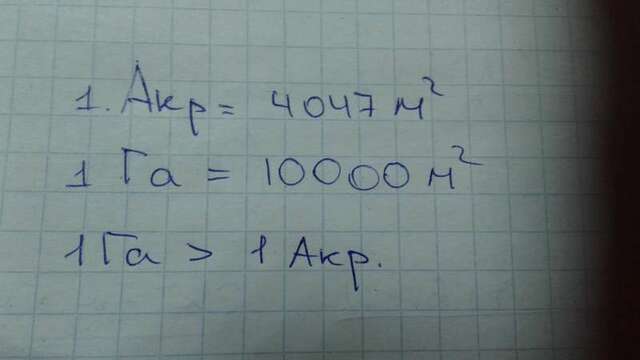 1. Акр = 4047 м²
1 Га = 10000 м²
1 Га > 1 Акр.